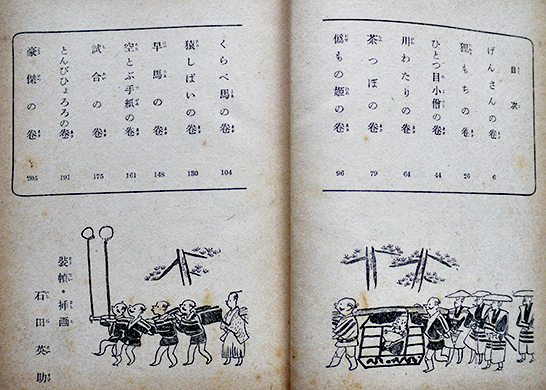 目次
げんさんの巻 6
狸もちの巻 26
ひとつ目小僧の巻 44
川わたりの巻 64
茶つぼの巻 79
偽もの姫の巻 96
くらべ馬の巻 104
猿しばいの巻 130
早馬の巻 148
空とぶ手紙の巻 161
試合の巻 175
とんびひょろろの巻 191
豪傑の巻 205
装幀・挿画
石田英助